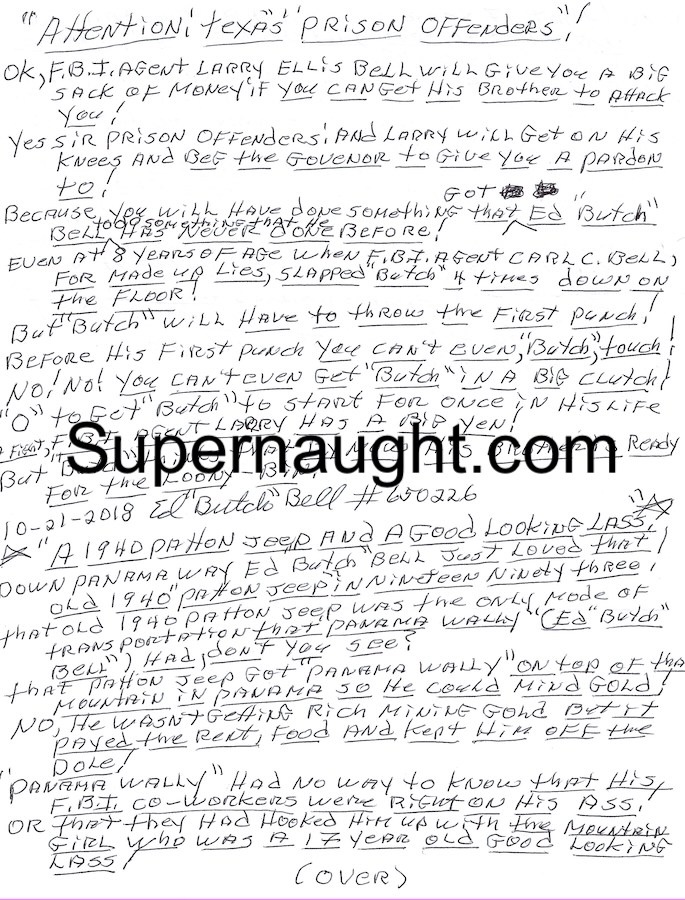 "Attention! Texas" "Prison Offenders"!
OK, F.B.I. Agent Larry Ellis Bell will give you a big
sack of money if you can get his brother to attack
you!
Yes sir prison offenders! And Larry will get on his
knees and beg the Govenor to give you a pardon
to!
Got
Because you will have done something that Ed "Butch"
to do something that he
Bell has never done before!
Even at 8 years of age when F.B.I. Agent Carl C. Bell,
for made up lies, slapped "Butch" 4 times down on
the floor!
But "Butch" will have to throw the first punch!
Before his first punch you can't even, "Butch," touch!
No! No! You can't even get "Butch" in a big clutch!
"O" to get "Butch" to start for once in his life
a fight, F.B.I. Agent Larry has a big yen!
Supernaught.com
But "Butch" his brother is ready
for the loony bin!
10-21-2018 Ed "Butch" Bell #650226
"A 1940 Patton Jeep and a good looking lass!"
Down Panama way Ed "Butch" Bell just loved that
old 1940 "Patton Jeep" in nineteen ninety three!
That old 1940 Patton Jeep was the only mode of
transportation that "Panama Wally" (Ed "Butch"
Bell") had, don't you see?
That Patton Jeep got "Panama Wally" on top of tha
mountain in Panama so he could mind gold!
No, he wasn't getting rich mining gold but it
payed the rent, food and kept him off the
dole!
"Panama Wally" had no way to know that his,
F.B.I. co-workers were right on his ass!
Or that they had hooked him up with the mountain
girl who was a 17 year old good looking
lass!
(over)